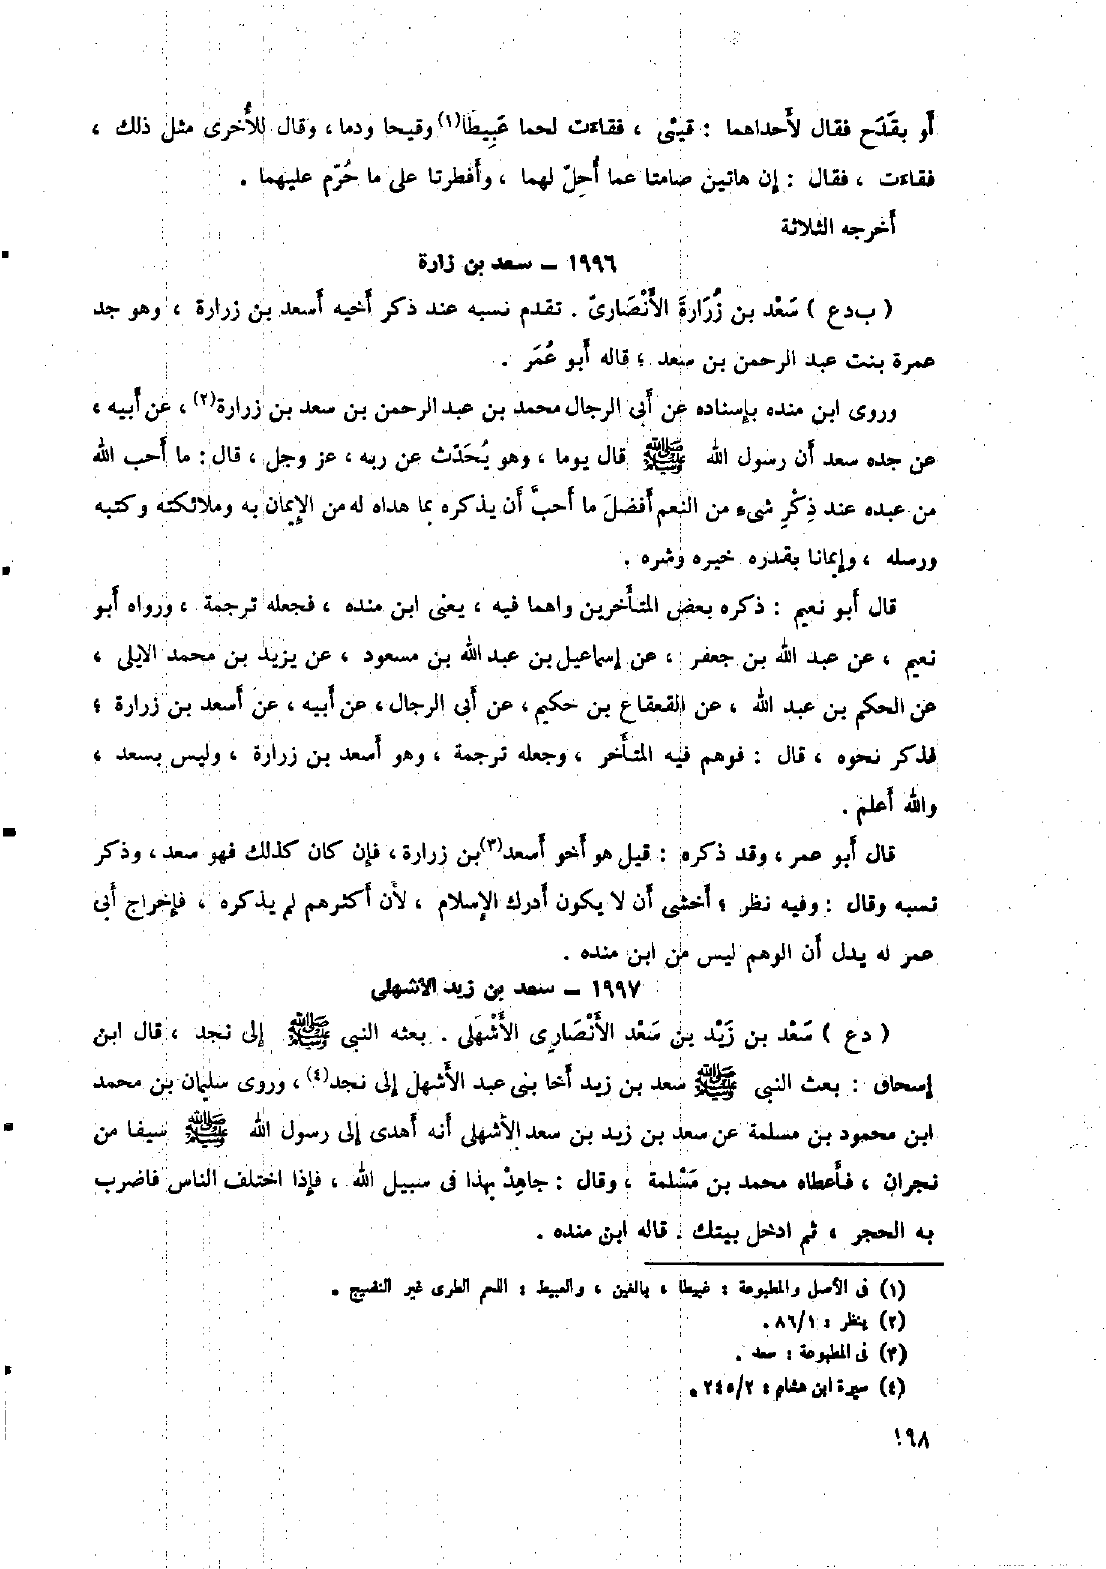 أَو بقَدَح فقال لأَحداهما : قيئى ، فقاءت لحما عَبِيطا(١) وقيحا ودما ، وقال للأُخرى مثل ذلك ،
فقاءت ، فقال : إن هاتين صامتا عما أُحِلّ لهما ، وأَفطرتا على ما حُرّم عليهما .
أَخرجه الثلاثة
١٩٩٦ – سعد بن زارة
( ب د ع ) سَعْد بن زُرَارةَ الأَنْصَارىّ . تقدم نسبه عند ذكر أَخيه أَسعد بن زرارة ، وهو جد
عمرة بنت عبد الرحمن بن سعد ؛ قاله أَبو عُمَر .
وروى ابن منده بإسناده عن أَبى الرجال محمد بن عبد الرحمن بن سعد بن زرارة(٢) ، عن أَبيه ،
عن جده سعد أَن رسول الله ﷺ قال يوما ، وهو يُحَدّث عن ربه ، عز وجل ، قال : ما أَحب الله
من عبده عند ذِكْرِ شىء من النعم أَفضلَ ما أَحبَّ أَن يذكره بما هداه له من الإيمان به وملائكته وكتبه
ورسله ، وإيمانا بقدره خيره وشره .
قال أَبو نعيم : ذكره بعض المتأَخرين واهما فيه ، يعنى ابن منده ، فجعله ترجمة ، ورواه أَبو
نعيم ، عن عبد الله بن جعفر ، عن إسماعيل بن عبد الله بن مسعود ، عن يزيد بن محمد الايلى ،
عن الحكم بن عبد الله ، عن القعقاع بن حكيم ، عن أَبى الرجال ، عن أَبيه ، عن أَسعد بن زرارة ؛
فذكر نحوه ، قال : فوهم فيه المتأَخر ، وجعله ترجمة ، وهو أَسعد بن زرارة ، وليس بسعد ،
والله أَعلم .
قال أَبو عمر ، وقد ذكره : قيل هو أَخو أَسعد(٣) بن زرارة ، فإن كان كذلك فهو سعد ، وذكر
نسبه وقال : وفيه نظر ؛ أَخشى أَن لا يكون أَدرك الإسلام ، لأَن أَكثرهم لم يذكره ، فإخراج أَبى
عمر له يدل أَن الوهم ليس من ابن منده .
١٩٩٧ – سعد بن زيد الاشهلى
( د ع ) سَعْد بن زَيْد بن سَعْد الأَنْصَارِى الأَشْهَلى . بعثه النبى ﷺ إلى نجد ، قال ابن
إسحاق : بعث النبى ﷺ سعد بن زيد أَخا بنى عبد الأَشهل إلى نجد(٤) ، وروى سليمان بن محمد
ابن محمود بن مسلمة عن سعد بن زيد بن سعد الأَشهلى أَنه أَهدى إلى رسول الله ﷺ سيفا من
نجران ، فأَعطاه محمد بن مَسْلمة ، وقال : جاهِدْ بهذا فى سبيل الله ، فإذا اختلف الناس فاضرب
به الحجر ، ثم ادخل بيتك . قاله ابن منده .
(١) فى الأصل والمطبوعة : غبيطا ، بالغين ، والعبيط : اللحم الطرى غير النضيج .
(٢) ينظر : ٨٦/١ .
(٣) فى المطبوعة : سعد .
(٤) سيرة ابن هشام : ٢٤٥/٢ .
١٩٨